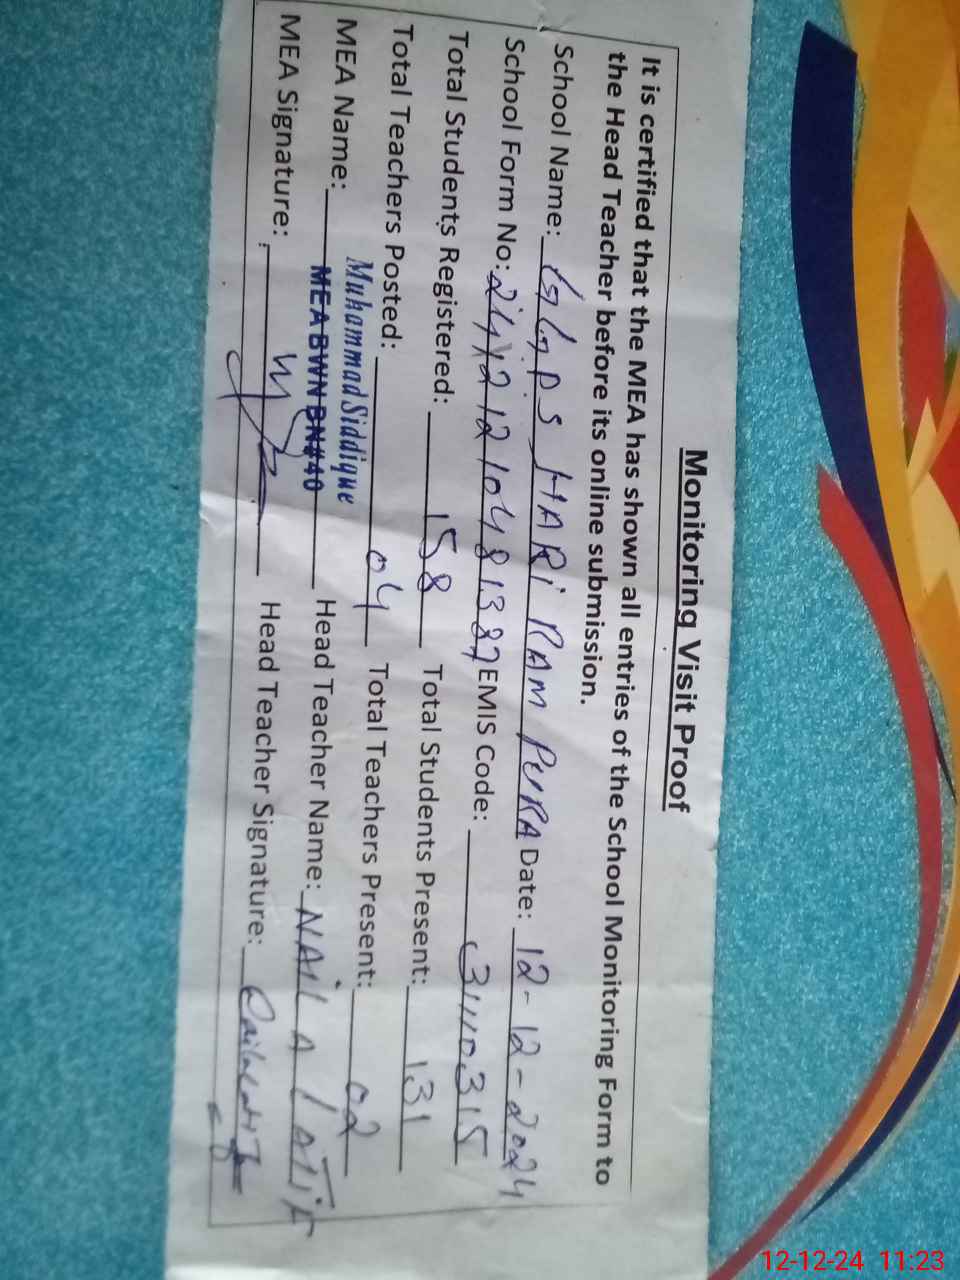 Monitoring Visit Proof
It is certified that the MEA has shown all entries of the School Monitoring Form to
the Head Teacher before its online submission.
School Name: GGPS HARI RAM PURA Date: 12-12-2024
School Form No: EMIS Code: 31110315
Total Students Registered: 158 Total Students Present: 131
Total Teachers Posted: 04 Total Teachers Present: 02
MEA Name: Muhammad Siddique Head Teacher Name: NAILA LATIF
MEA BWN BN#40
MEA Signature: Head Teacher Signature:
12-12-24 11:23